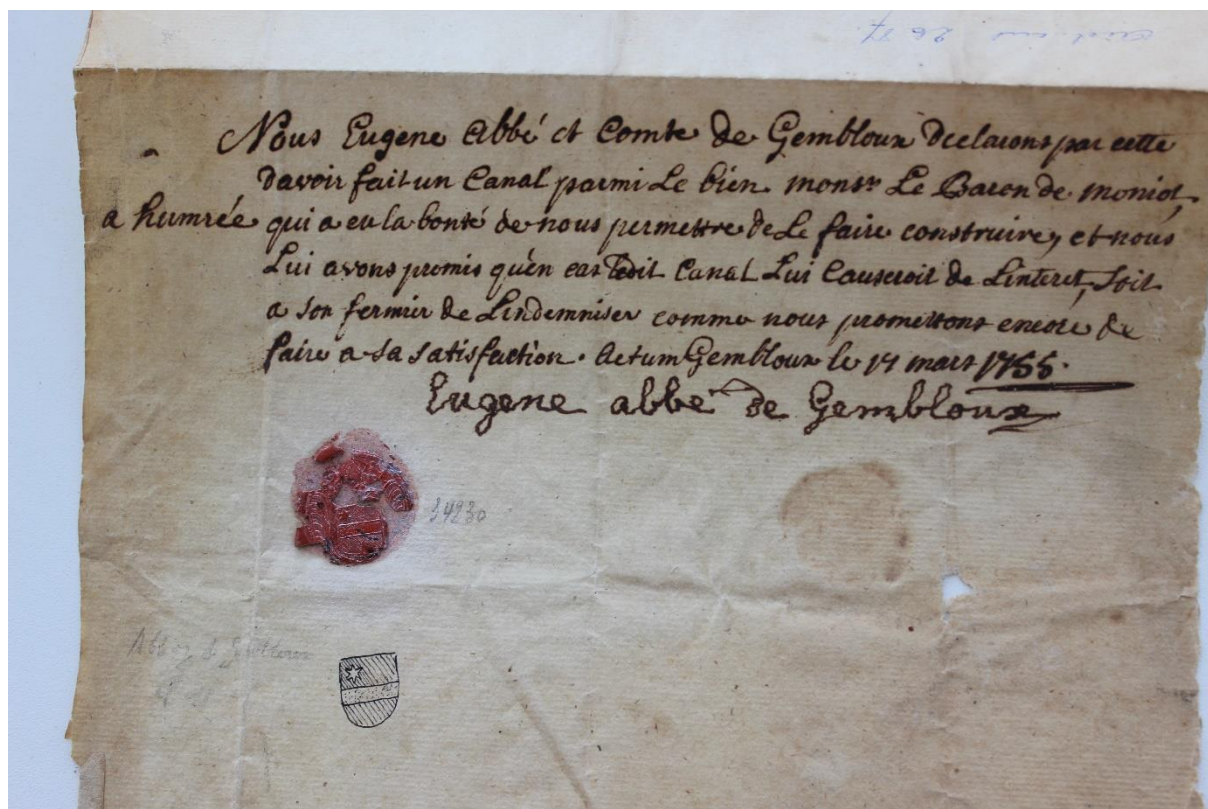 Nous Eugene Abbé et Comte de Gembloux declarons par cette
davoir fait un Canal parmi Le bien monsr Le Baron de moniot,
a humrée qui a eu la bonté de nous permettre de Le faire construire, et nous
Lui avons promis qu'en cas Ledit Canal Lui Causeroit de Linteret, soit
a son fermier de Lindemniser comme nous promettons encore de
faire a sa satisfaction. Actum Gembloux le 17 mars 1755.
Eugene abbé de Gembloux
34230